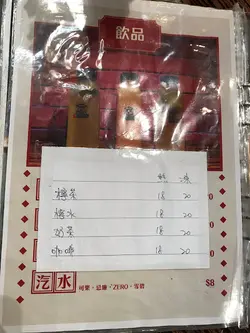 飲品
熱 凍
檸茶 18 20
檸水 18 20
奶茶 18 20
咖啡 18 20
汽水 可樂·忌廉·ZERO·雪碧 $8